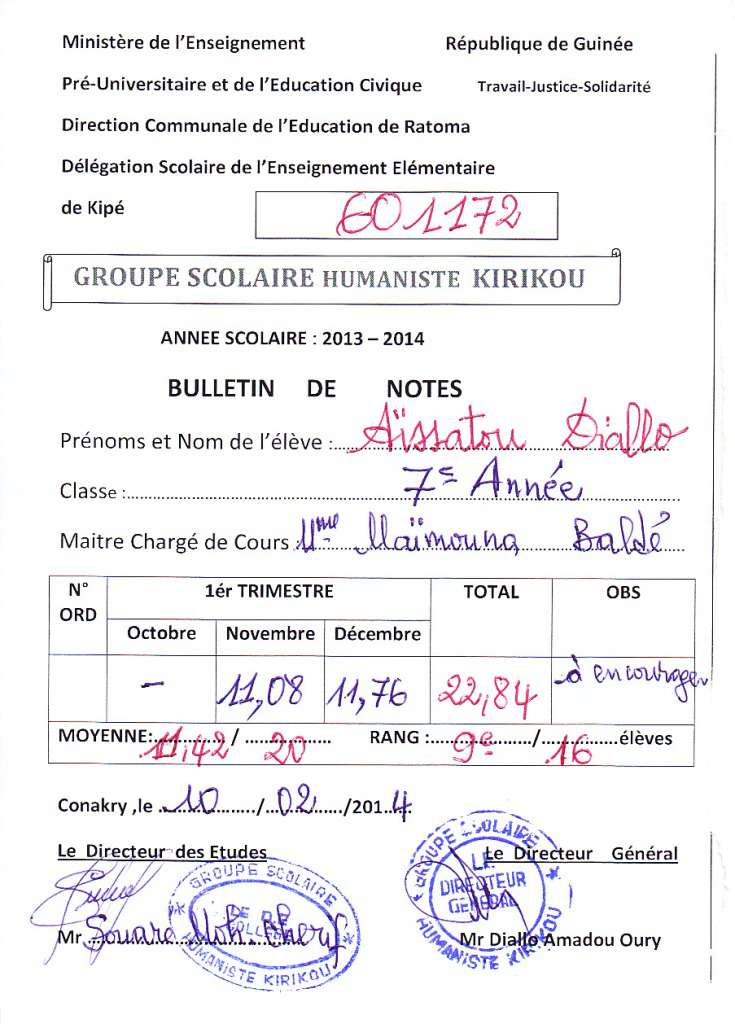 Ministère de l'Enseignement République de Guinée
Pré-Universitaire et de l'Education Civique Travail-Justice-Solidarité
Direction Communale de l'Education de Ratoma
Délégation Scolaire de l'Enseignement Elémentaire
de Kipé 601172
GROUPE SCOLAIRE HUMANISTE KIRIKOU
ANNEE SCOLAIRE : 2013 – 2014
BULLETIN DE NOTES
Prénoms et Nom de l'élève : Aïssatou Diallo
Classe : 7e Année
Maitre Chargé de Cours : Mme Maïmouna Baldé
N° ORD 1ér TRIMESTRE TOTAL OBS
Octobre Novembre Décembre
– 11,08 11,76 22,84 à encourager
MOYENNE: 11,42 / 20 RANG : 9e / 16 élèves
Conakry ,le 10 / 02 /2014
Le Directeur des Etudes Le Directeur Général
GROUPE SCOLAIRE
HUMANISTE KIRIKOU
GROUPE SCOLAIRE
LE
DIRECTEUR
GENERAL
HUMANISTE KIRIKOU
Mr Souaré Moh. Cherif Mr Diallo Amadou Oury